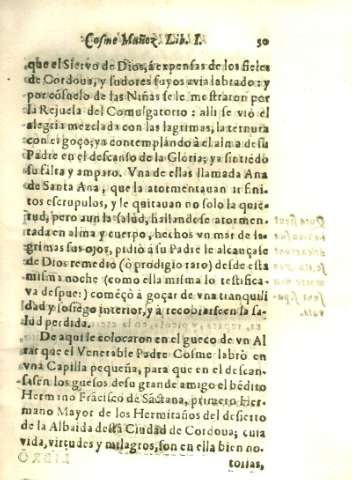 Cosme Muñoz. Lib. I. 50
que el Siervo de Dios, á expensas de los fieles
de Cordoua, y sudores suyos avia labrado: y
por cõsuelo de las Niñas se le mostraron por
la Rejuela del Comulgatorio: alli se viò el
alegria mezclada con las lagrimas, la ternura
con el goço; ya contemplãdo à el alma de su
Padre en el descanso de la Gloria; ya sintiẽdo
su falta y amparo. Vna de ellas llamada Ana
de Santa Ana, que la atormentauan infini-
tos escrupulos, y le quitauan no solo la quie-
tud, pero aun la salud, hallandose atormen-
tada en alma y cuerpo, hechos vn mar de la-
grimas sus ojos, pidiò à su Padre le alcançase
de Dios remedio (ò prodigio raro) desde esta
misma noche (como ella misma lo testifica-
va despues) começò à goçar de vna tranquili
dad y sosiego interior, y à recobrarse en la sa-
lud perdida.
De aqui le colocaron en el gueco de vn Al
tar que el Venerable Padre Cosme labrò en
vna Capilla pequeña, para que en el descan-
sasen los guesos de su grande amigo el bẽdito
Hermano Frãcisco de Sãctana, primero Her-
mano Mayor de los Hermitaños del desierto
de la Albaida desta Ciudad de Cordoua; cuia
vida, virtudes y milagros, son en ella bien no-
torias,